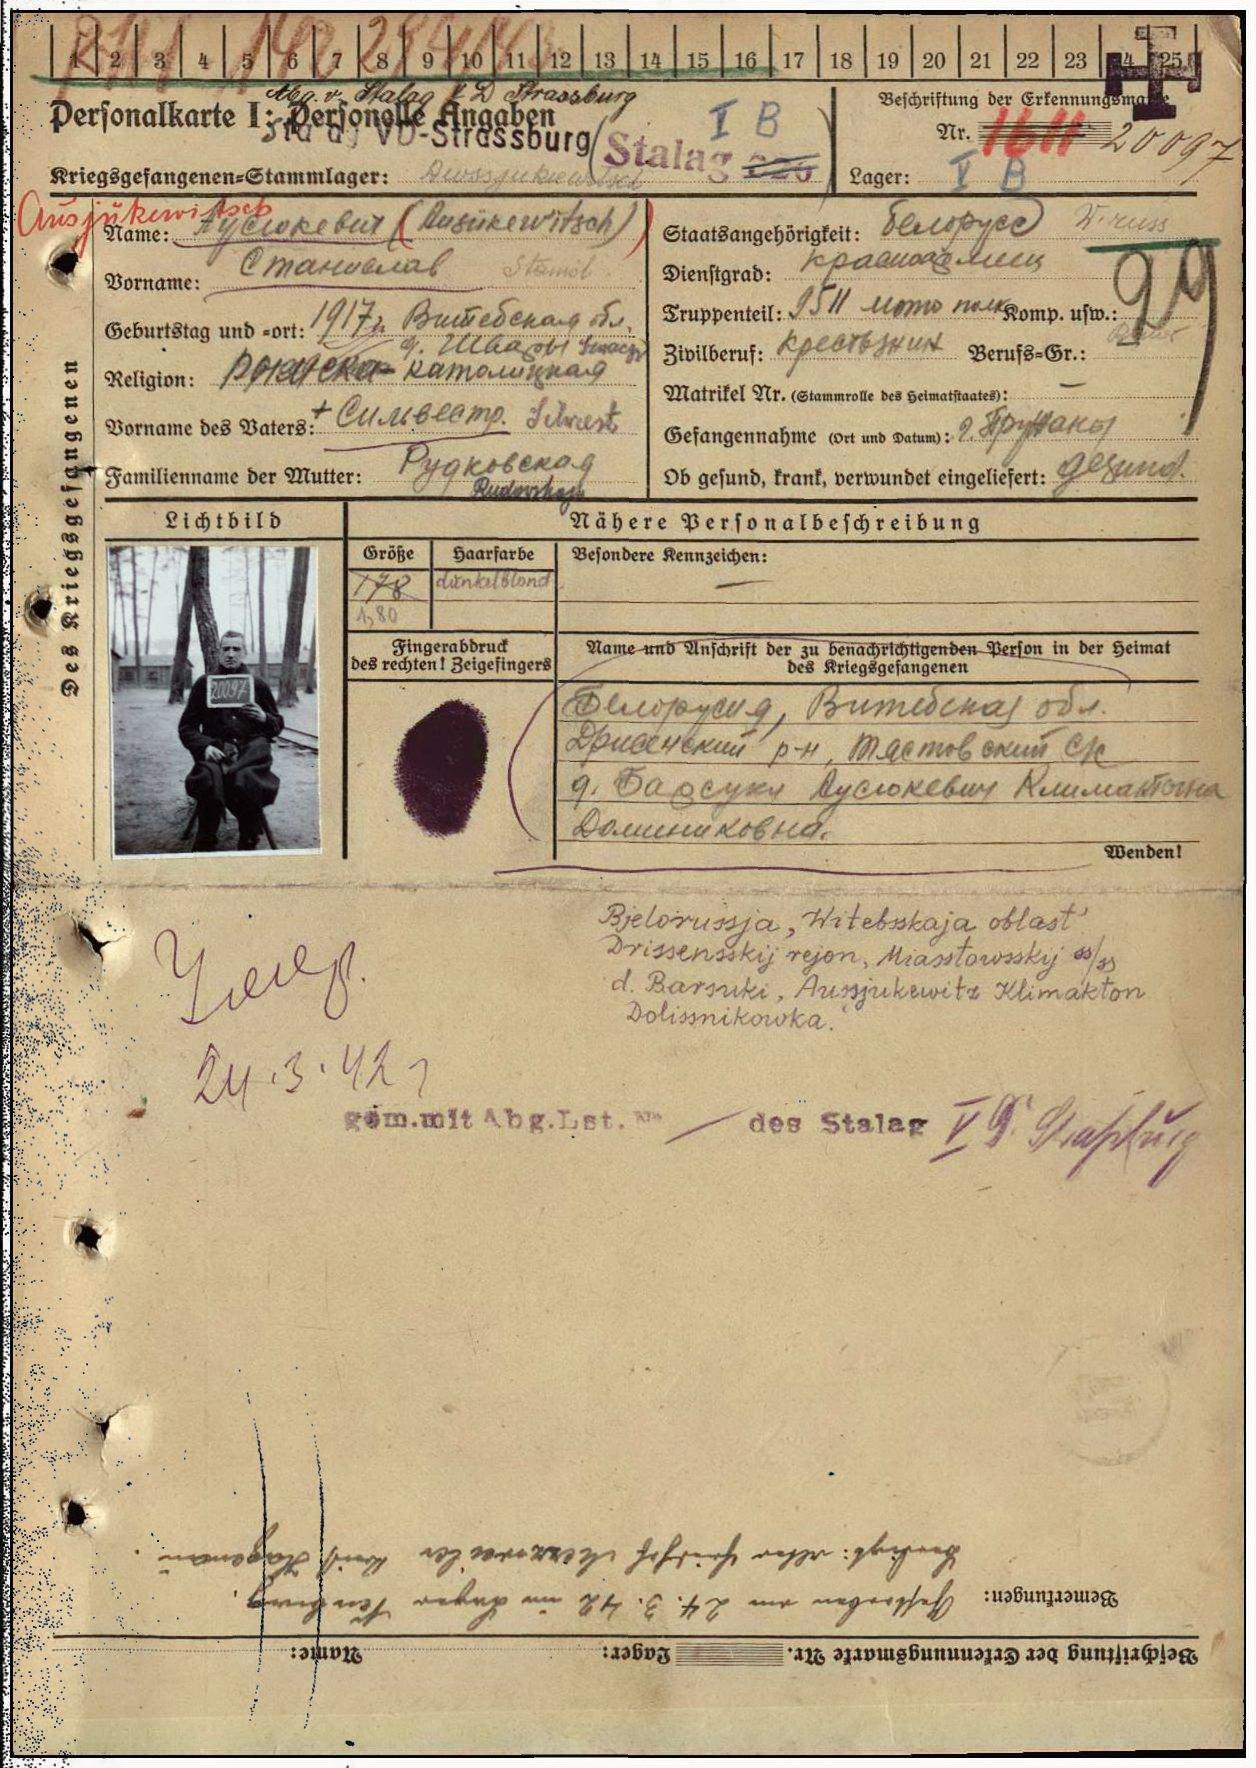 1 2 3 4 5 6 7 8 9 10 11 12 13 14 15 16 17 18 19 20 21 22 23 4 25
Abg. v. Stalag V D Strassburg
Personalkarte I: Personelle Angaben
VD-Strassburg
Stalag
I B
Kriegsgefangenen-Stammlager:
Beschriftung der Erkennungsmarke
Nr. 1611 20097
Lager: I B
Ausjukewitsch
Name: Аусюкевич (Ausukewitsch)
Vorname: Станислав
Geburtstag und -ort: 1917 г. Витебская обл.
д. Швабы
Religion: католицкая
Vorname des Vaters: + Сильвестр. Silvest
Familienname der Mutter: Рудковская
Rudovskaja
Staatsangehörigkeit: белорусс W-russ
Dienstgrad: красноармеец
Truppenteil: 9511 мото полк Komp. usw.:
Zivilberuf: крестьянин Berufs-Gr.:
Matrikel Nr. (Stammrolle des Heimatstaates): —
Gefangennahme (Ort und Datum): г. Пружаны
Ob gesund, krank, verwundet eingeliefert: gesund.
99
Des Kriegsgefangenen
Lichtbild
Nähere Personalbeschreibung
Größe Haarfarbe Besondere Kennzeichen:
178 dunkelblond —
1,80
Fingerabdruck
des rechten! Zeigefingers
Name und Anschrift der zu benachrichtigenden Person in der Heimat
des Kriegsgefangenen
20097
Белорусия, Витебская обл.
Дрисенский р-н, Мястовский с/с
д. Барсуки Аусюкевич
Доминиковна.
Wenden!
Bjelorussja, Witebsskaja oblast'
Drissensskij rejon, Miasstowsskij ss/ss
d. Barsuki, Aussjukewitz Klimakton
Dolissnikowka.
Умер.
24.3.42 г
gem. mit Abg. Lst. Nr. — des Stalag V D Straßburg
Bemerkungen: Gestorben am 24. 3. 42 im Lager
Beerdigt: alter Friedhof
Beschriftung der Erkennungsmarke Nr. Lager: Name: